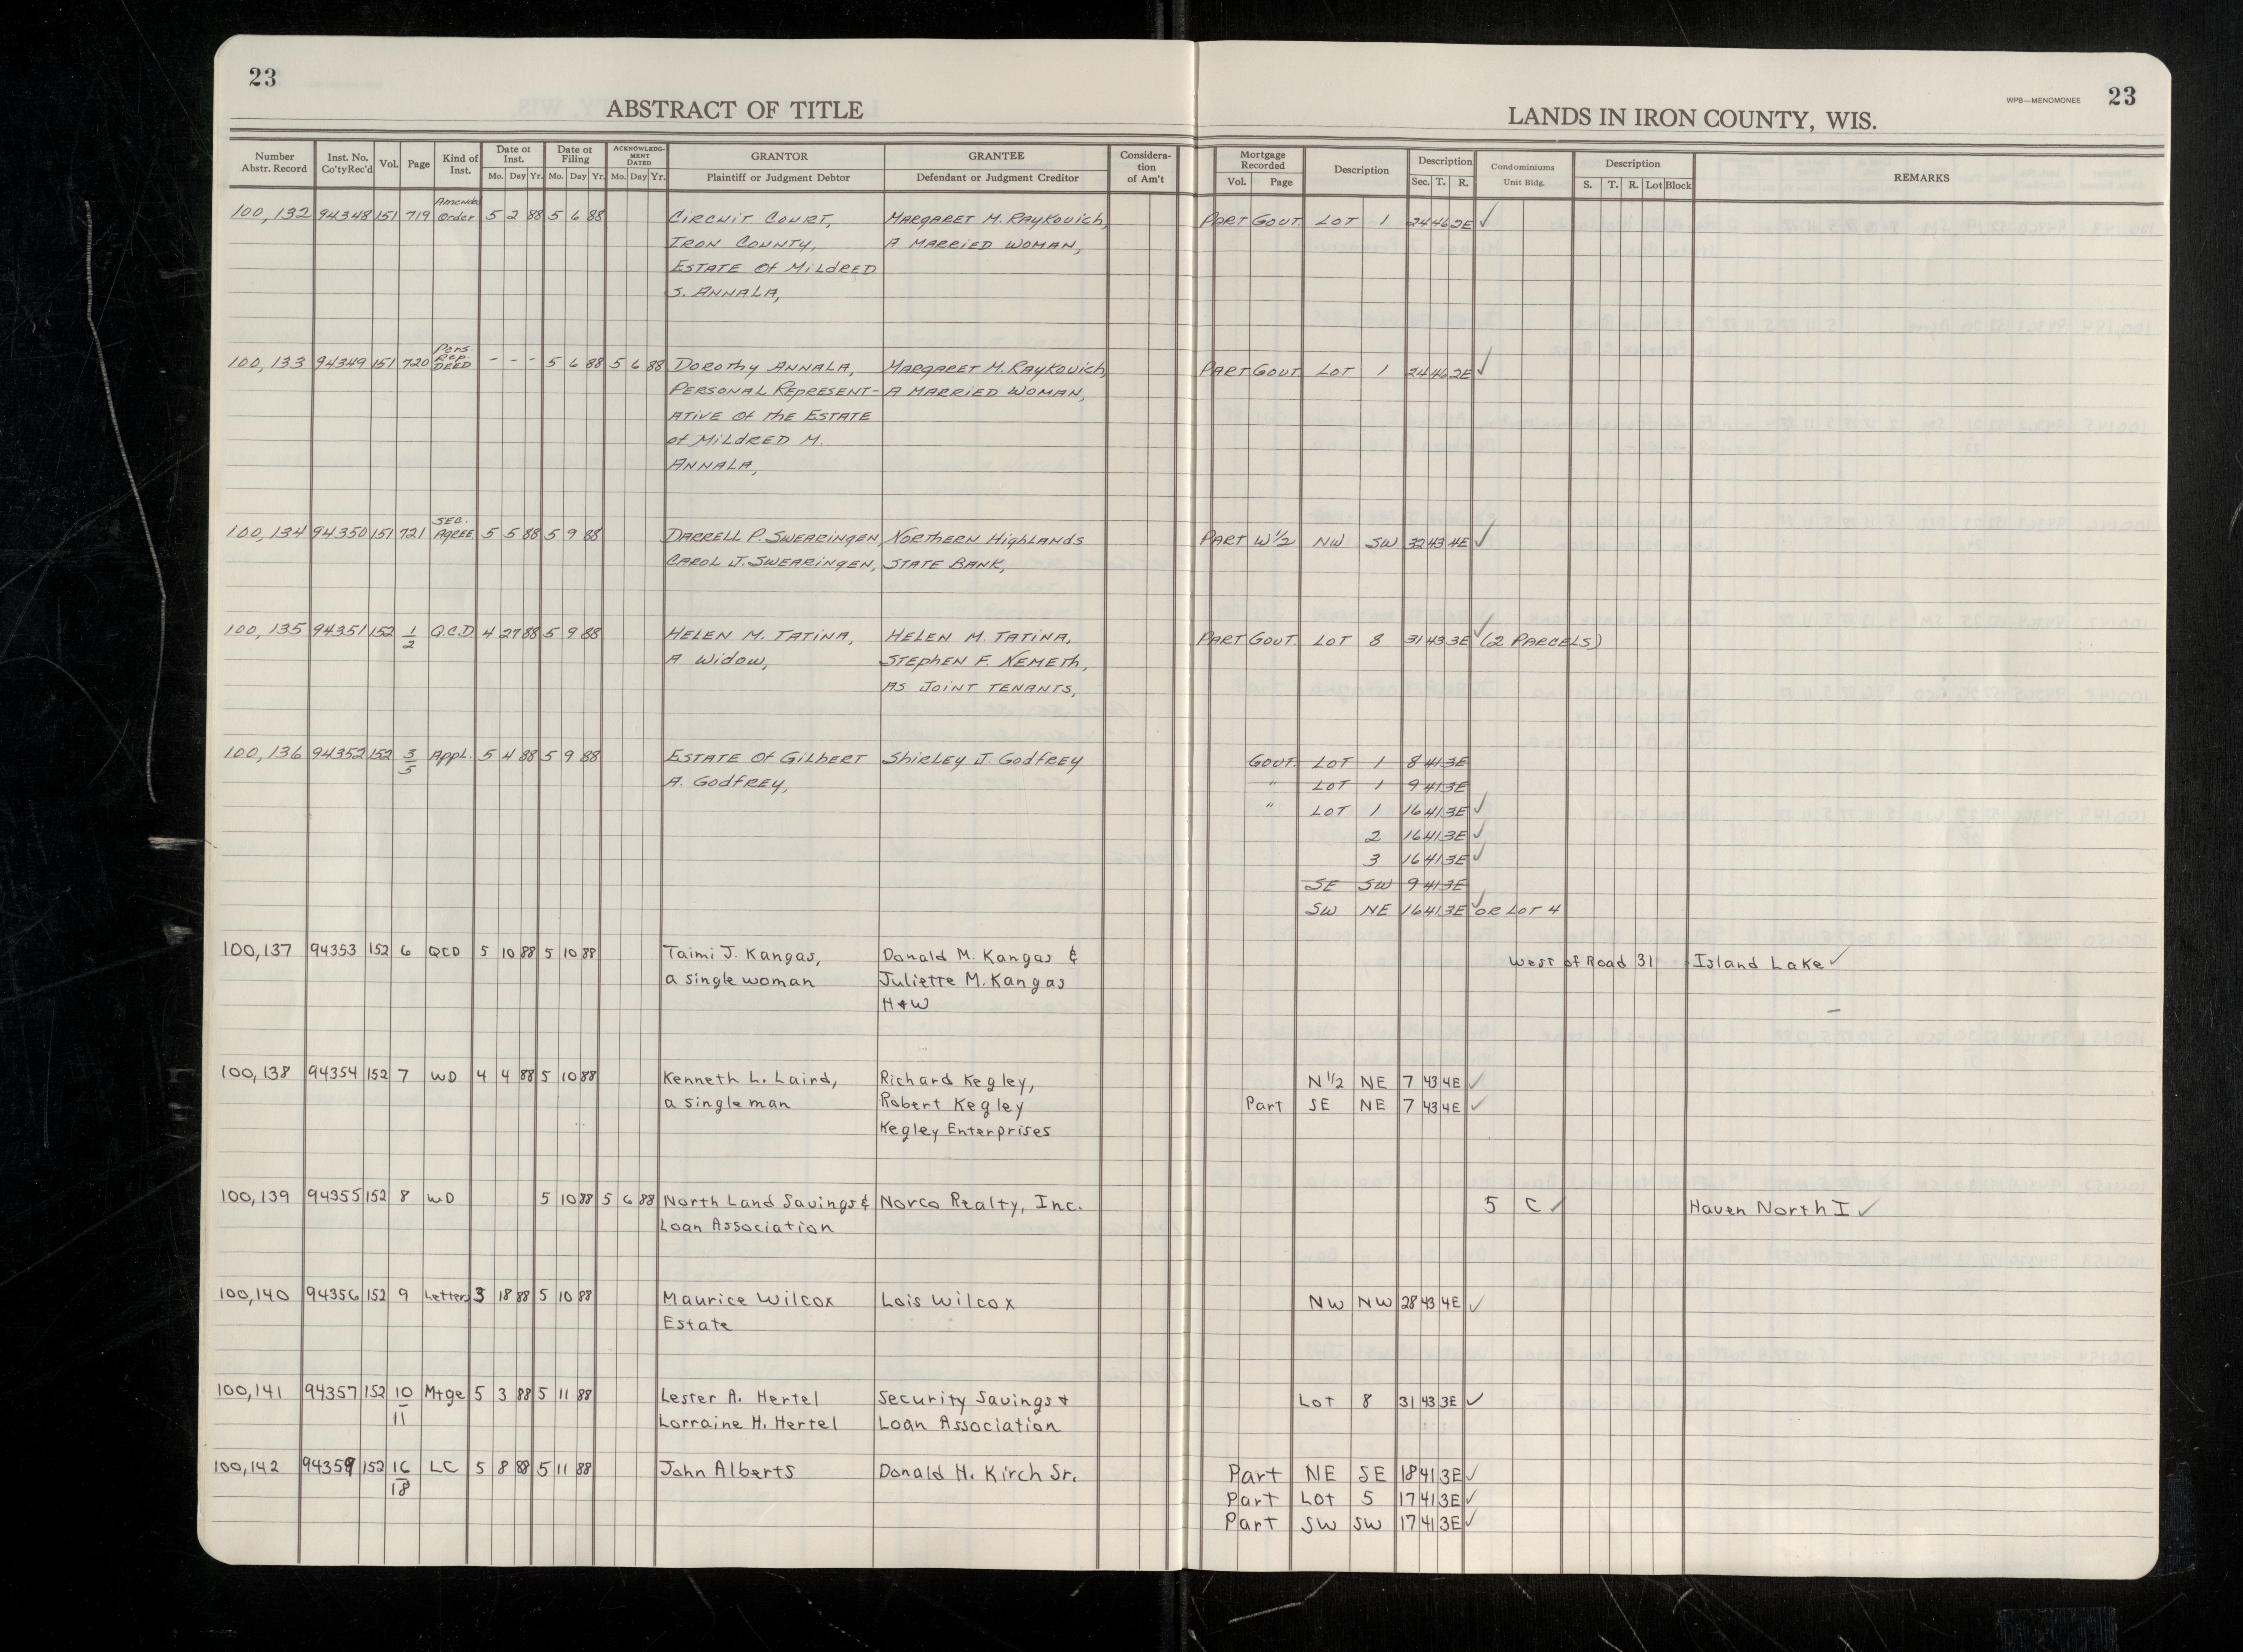 23
ABSTRACT OF TITLE
Number Abstr. Record Inst. No. Co'ty Rec'd Vol. Page Kind of Inst. Date of Inst. Mo. Day Yr. Date of Filing Mo. Day Yr. ACKNOWLEDG-MENT DATED Mo. Day Yr. GRANTOR Plaintiff or Judgment Debtor GRANTEE Defendant or Judgment Creditor Considera-tion of Am't
WPB—MENOMONEE 23
LANDS IN IRON COUNTY, WIS.
Mortgage Recorded Vol. Page Description Description Sec. T. R. Condominiums Unit Bldg. Description S. T. R. Lot Block REMARKS
Amended
100,132 94348 151 719 Order 5 2 88 5 6 88 Circuit Court, Margaret M. Raykovich, Part Gout. Lot 1 24 46 2E ✓
Iron County, A Married Woman,
Estate of Mildred
S. Annala,
Pers.
Rep.
100,133 94349 151 720 Deed - - - 5 6 88 5 6 88 Dorothy Annala, Margaret M. Raykovich, Part Gout. Lot 1 24 46 2E ✓
Personal Represent- A Married Woman,
ative of the Estate
of Mildred M.
Annala,
Sec.
100,134 94350 151 721 Agree 5 5 88 5 9 88 Darrell P. Swearingen, Northern Highlands Part W 1/2 NW SW 32 43 4E ✓
Carol J. Swearingen, State Bank,
100,135 94351 152 1/2 Q.C.D 4 27 88 5 9 88 Helen M. Tatina, Helen M. Tatina, Part Gout. Lot 8 31 43 3E ✓ (2 Parcels)
A Widow, Stephen F. Nemeth,
As Joint Tenants,
100,136 94352 152 3/5 Appl. 5 4 88 5 9 88 Estate of Gilbert Shirley J. Godfrey Gout. Lot 1 8 41 3E
A. Godfrey, " Lot 1 9 41 3E
" Lot 1 16 41 3E ✓
2 16 41 3E ✓
3 16 41 3E ✓
SE SW 9 41 3E
SW NE 16 41 3E ✓ or Lot 4
100,137 94353 152 6 QCD 5 10 88 5 10 88 Taimi J. Kangas, Donald M. Kangas & West of Road 31 Island Lake ✓
a single woman Juliette M. Kangas
H+W
100,138 94354 152 7 WD 4 4 88 5 10 88 Kenneth L. Laird, Richard Kegley, N 1/2 NE 7 43 4E ✓
a single man Robert Kegley Part SE NE 7 43 4E ✓
Kegley Enterprises
100,139 94355 152 8 WD 5 10 88 5 6 88 North Land Savings & Norco Realty, Inc. 5 C ✓ Haven North I ✓
Loan Association
100,140 94356 152 9 Letters 3 18 88 5 10 88 Maurice Wilcox Lois Wilcox NW NW 28 43 4E ✓
Estate
100,141 94357 152 10/11 Mtge 5 3 88 5 11 88 Lester A. Hertel Security Savings + Lot 8 31 43 3E ✓
Lorraine H. Hertel Loan Association
100,142 94359 152 16/18 LC 5 8 88 5 11 88 John Alberts Donald H. Kirch Sr. Part NE SE 18 41 3E ✓
Part Lot 5 17 41 3E ✓
Part SW SW 17 41 3E ✓